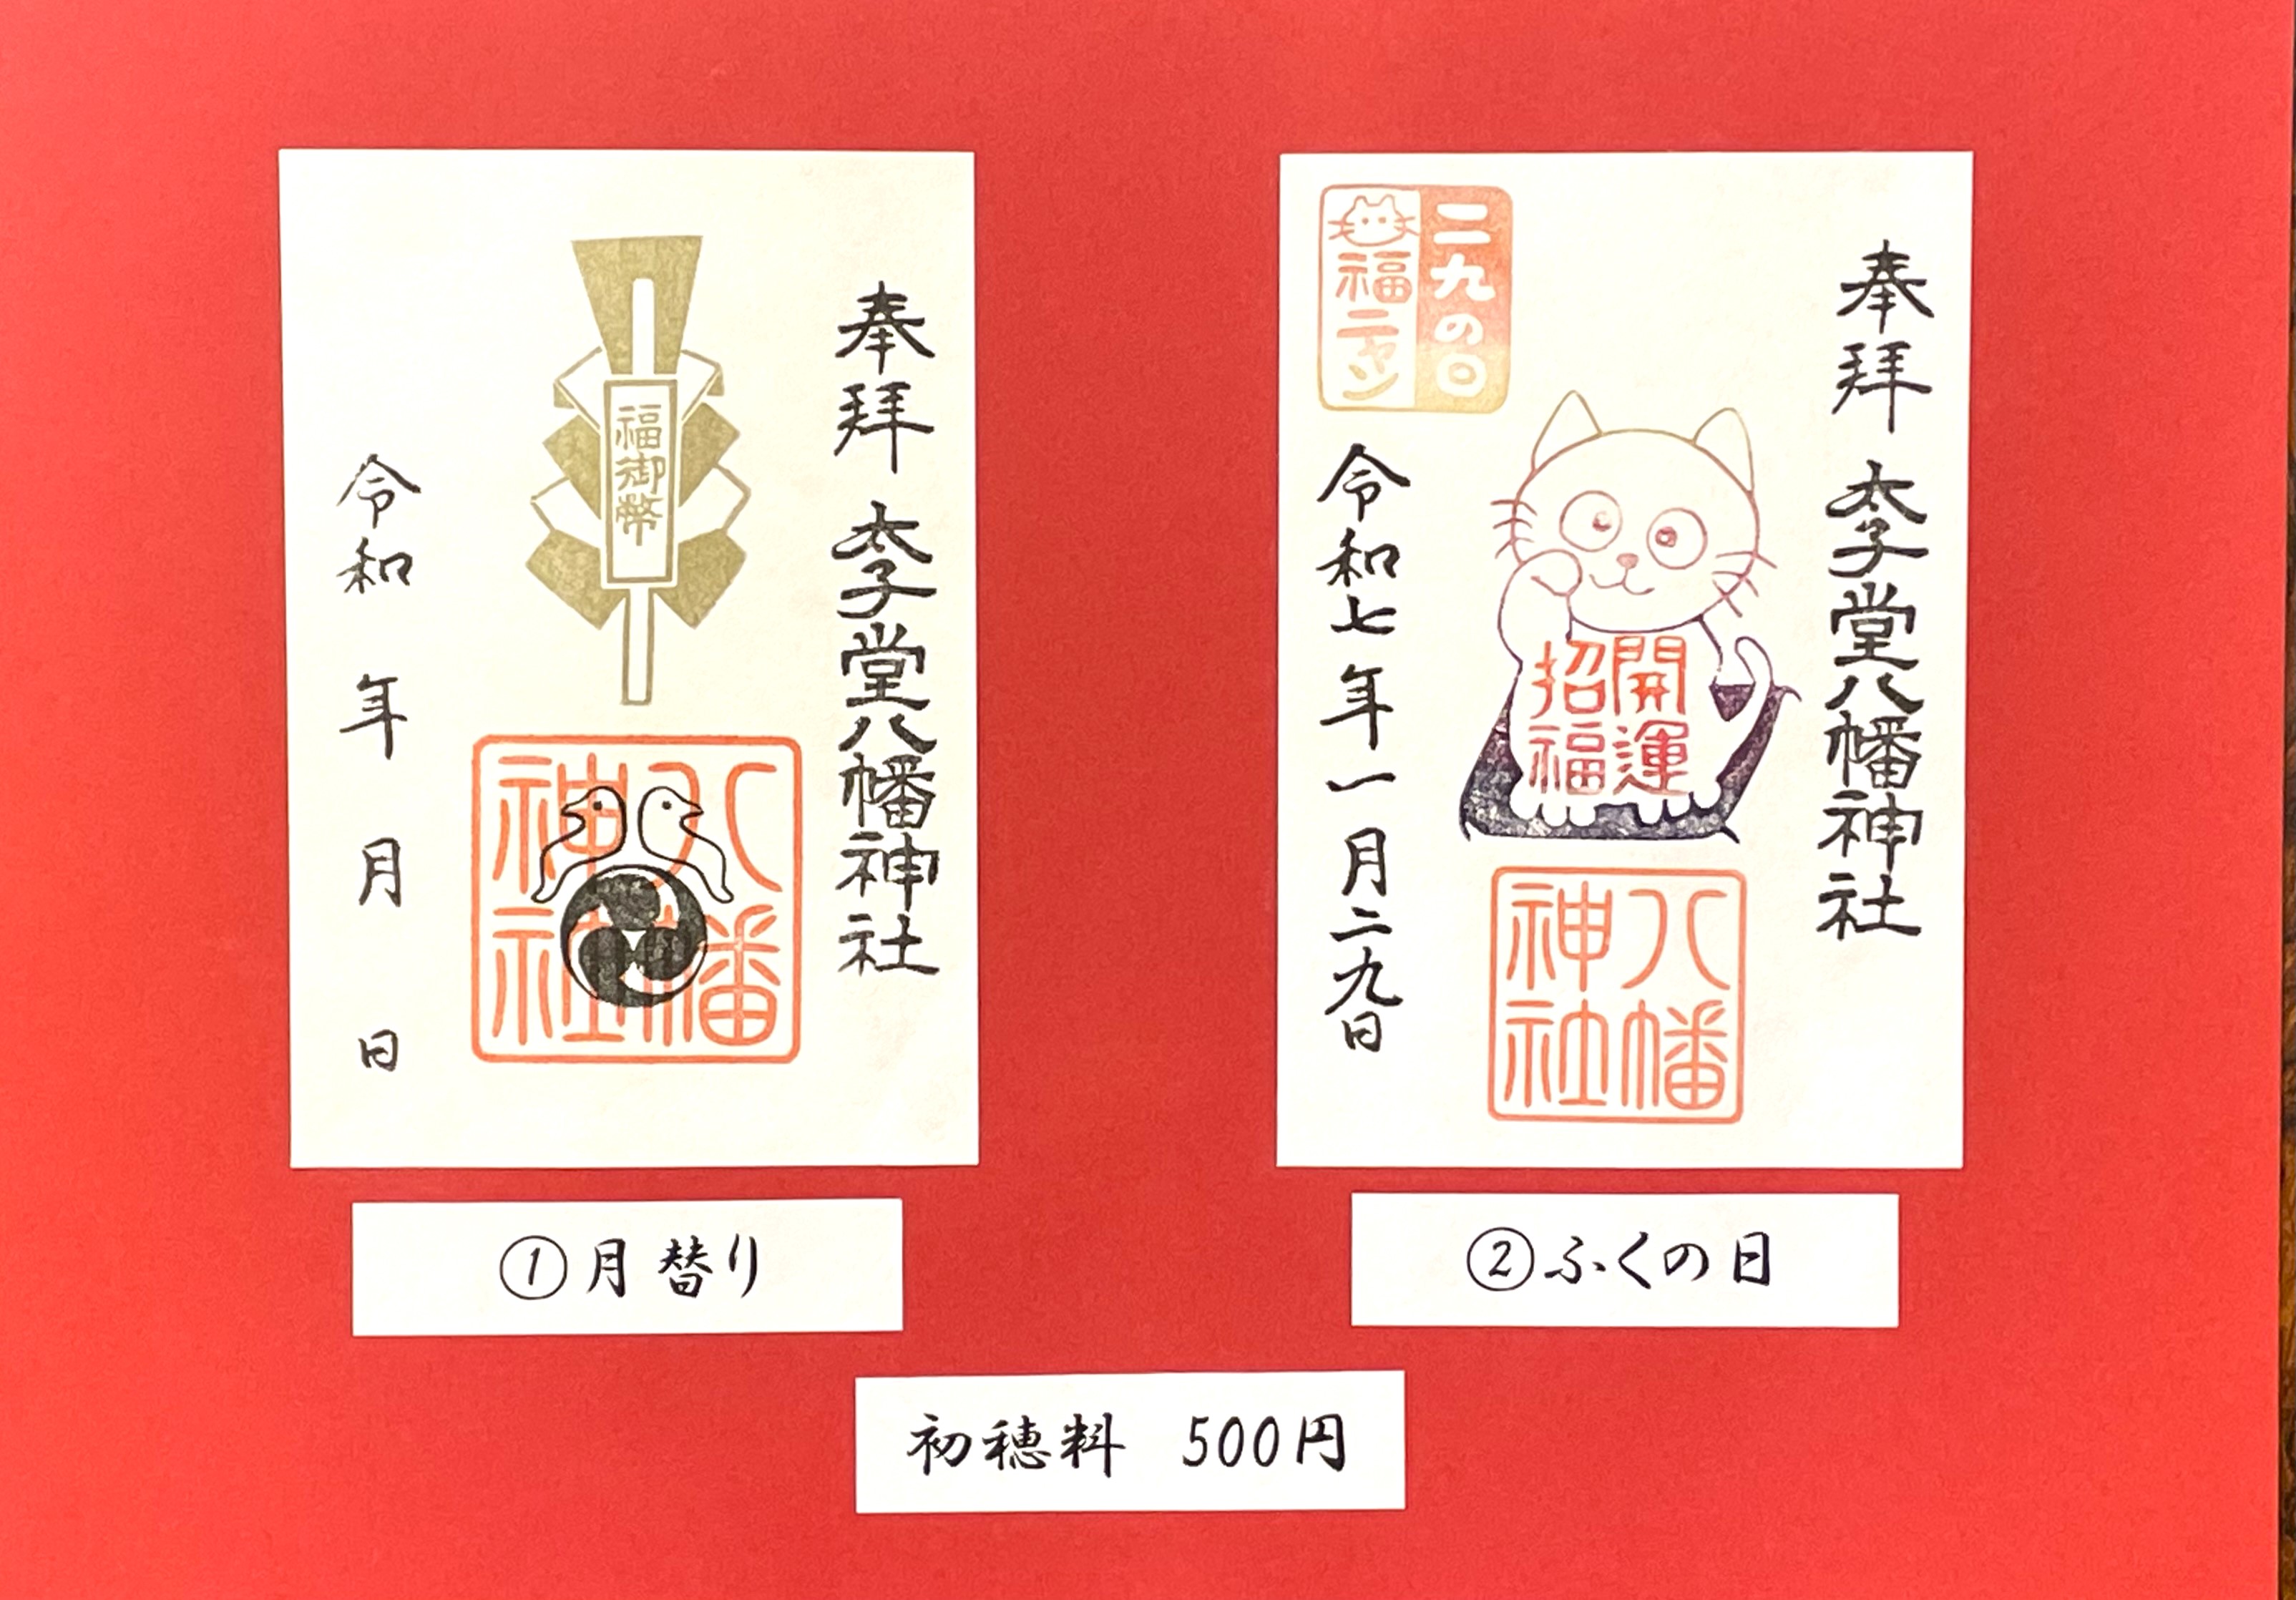 奉拝 太子堂八幡神社
福御幣
八幡
神社
令和 年 月 日
①月替り
奉拝 太子堂八幡神社
二九の日
福ニャン
開運
招福
八幡
神社
令和七年一月二九日
②ふくの日
初穂料 500円